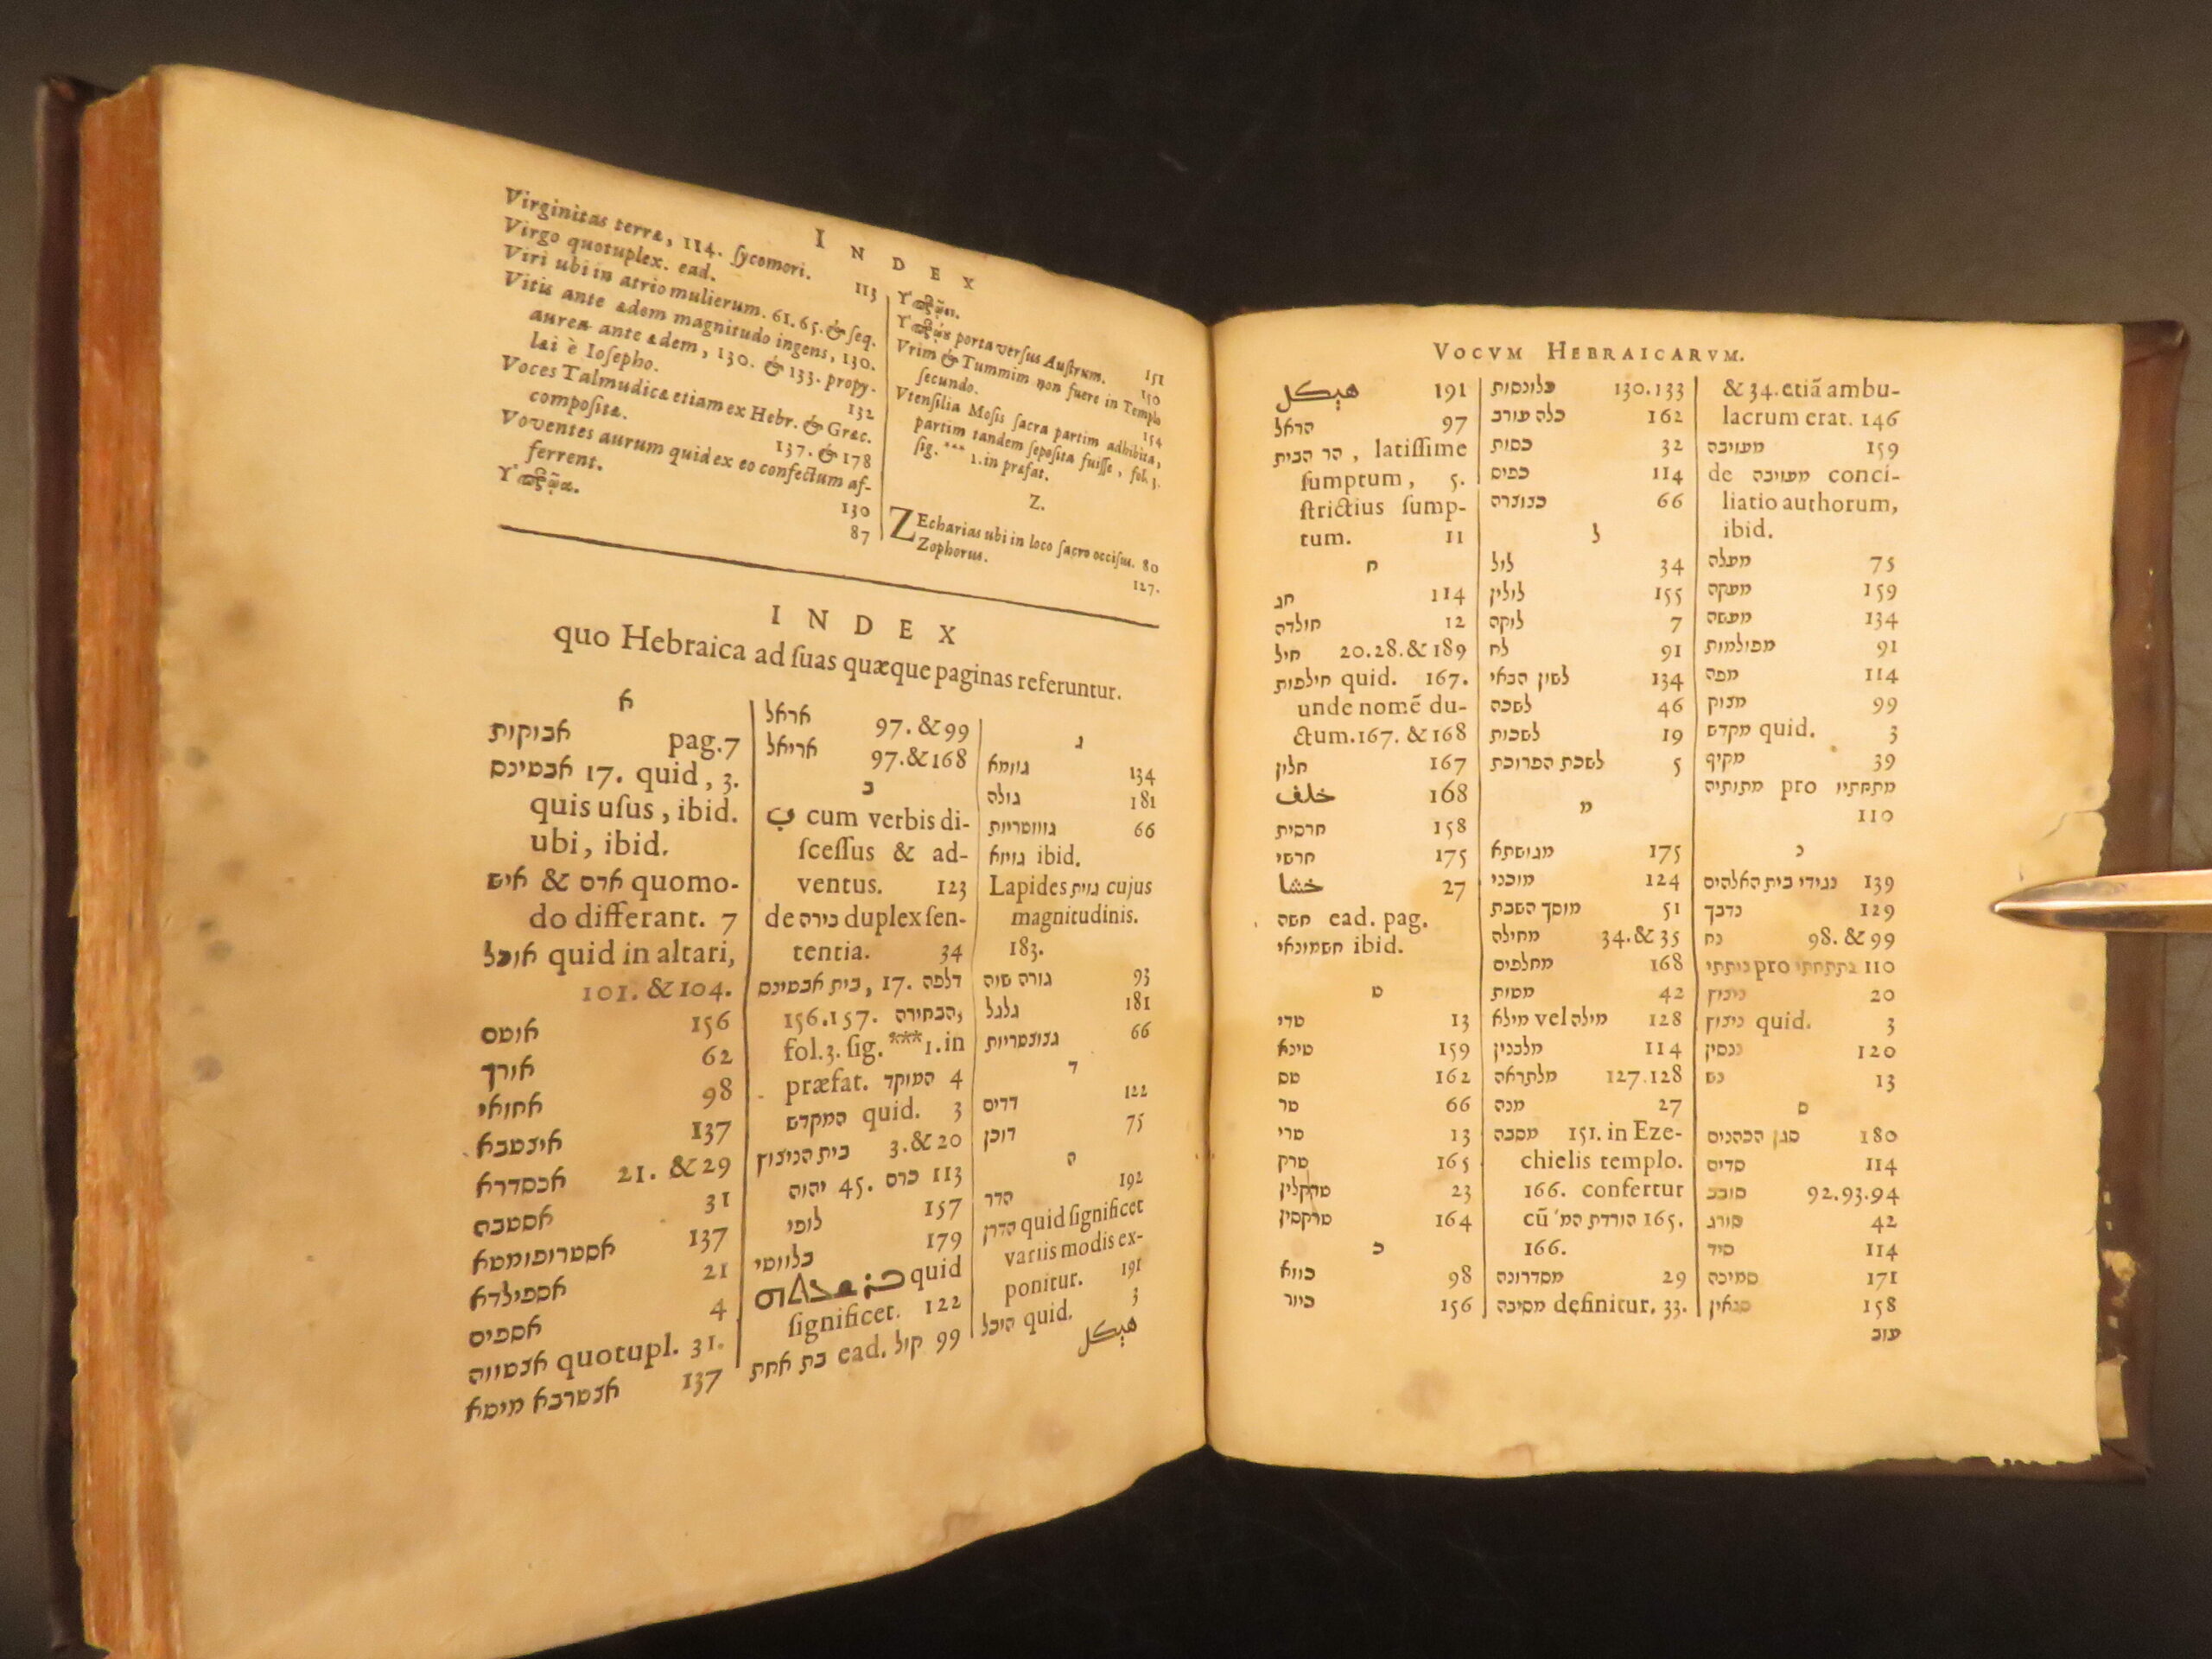 INDEX
Virginitas terræ, 114. ſycomori. 113
Virgo quotuplex. ead.
Viri ubi in atrio mulierum. 61. 65. & ſeq.
Vitis ante ædem magnitudo ingens, 130.
aurea ante ædem, 130. & 133. propy-
læi è Ioſepho. 132
Voces Talmudicæ etiam ex Hebr. & Græc.
compoſita. 137. & 178
Voventes aurum quid ex eo confectum af-
ferrent. 130
87
porta verſus Auſtrum. 151
150
Vrim & Tummim non fuere in Templo
ſecundo. 154
Vtenſilia Moſis ſacra partim adhibita,
partim tandem ſepoſita fuiſſe, fol. 3.
ſig. *** 1. in præfat.
Z.
ZEcharias ubi in loco ſacro occiſus. 80
Zophorus. 127.
INDEX
quo Hebraica ad ſuas quæque paginas referuntur.
א
אבוקות pag. 7
אבטינס 17. quid, 3.
quis uſus, ibid.
ubi, ibid.
איש & אדם quomo-
do differant. 7
אוכל quid in altari,
101. & 104.
אוטם 156
אורך 62
אחואי 98
איצטבא 137
אכסדרא 21. & 29
אסטבה 31
אסטרופומטא 137
אספלידא 21
אספיס 4
אצטווה quotupl. 31.
אצטרבא מיטא 137
אראל 97. & 99
אריאל 97. & 168
ב
ب cum verbis di-
ſceſſus & ad-
ventus. 123
de בירה duplex ſen-
tentia. 34
בית אבטינס, 17. דלפה
156. 157. הבחירה,
fol. 3. ſig. *** 1. in
præfat. המוקד 4
המקדש quid. 3
בית הניצוץ 3. & 20
יהוה 45. כרם 113
לופי 157
בלווטי 179
quid
ſignificet. 122
בת אחת ead. קול 99
ג
גוומא 134
גולה 181
גוזוטריות 66
גויא ibid.
Lapides גזית cujus
magnitudinis.
183.
גזרה שוה 93
גלגל 181
גצוצטריות 66
ד
דדים 122
דוכן 75
ה
הדר 192
הדרן quid ſignificet
variis modis ex-
ponitur. 191
היכל quid. 3
هيكل
VOCVM HEBRAICARVM.
هيكل 191
הראל 97
הר הבית, latiſſime
ſumptum, 5.
ſtrictius ſump-
tum. 11
ח
חג 114
חולדה 12
חיל 20. 28. & 189
חילפות quid. 167.
unde nomẽ du-
ctum. 167. & 168
חלין 167
خلف 168
חרסית 158
חרשי 175
خشا 27
חשה ead. pag.
חשמונאי ibid.
ט
טדי 13
טינא 159
טס 162
טר 66
טרי 13
טרק 165
טרקלין 23
טרקסין 164
כ
כווא 98
כיור 156
כלונסות 130. 133
כלה עורב 162
כסות 32
כפיס 114
כצוצרה 66
ל
לול 34
לולין 155
לוקה 7
לח 91
לשון הבאי 134
לשכה 46
לשכות 19
לשכת הפרוכת 5
מ
מגושתא 175
מוכני 124
מוסך השבת 51
מחילה 34. & 35
מחלפים 168
מטות 42
מילא vel מילה 128
מלבנין 114
מלתראה 127. 128
מנה 27
מסבה 151. in Eze-
chielis templo.
166. confertur
cũ הורדת המ׳ 165.
166.
מסדרונה 29
מסיבה definitur. 33.
& 34. etiã ambu-
lacrum erat. 146
מעזיבה 159
de מעזיבה conci-
liatio authorum,
ibid.
מעלה 75
מעקה 159
מעשה 134
מפולמות 91
מפה 114
מצוק 99
מקדש quid. 3
מקיף 39
מתותיה pro מתחתיו
110
נ
נגידי בית האלהים 139
נדבך 129
נח 98. & 99
ניתתי pro נתתתי 110
ניצוץ 20
ניצוץ quid. 3
נכסין 120
נט 13
ס
סגן הכהנים 180
סדים 114
סובב 92. 93. 94
סורג 42
סיד 114
סמיכה 171
סנאין 158
עוב